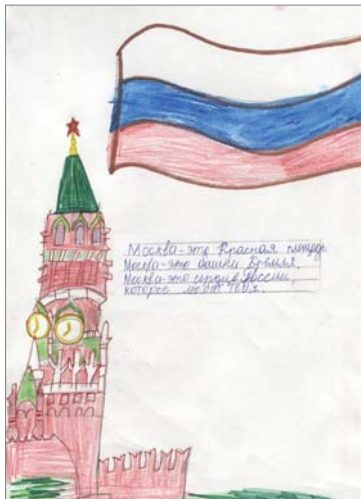 Москва-это Красная площадь
Москва-это башни Кремля.
Москва-это сердце России,
которое любит тебя.